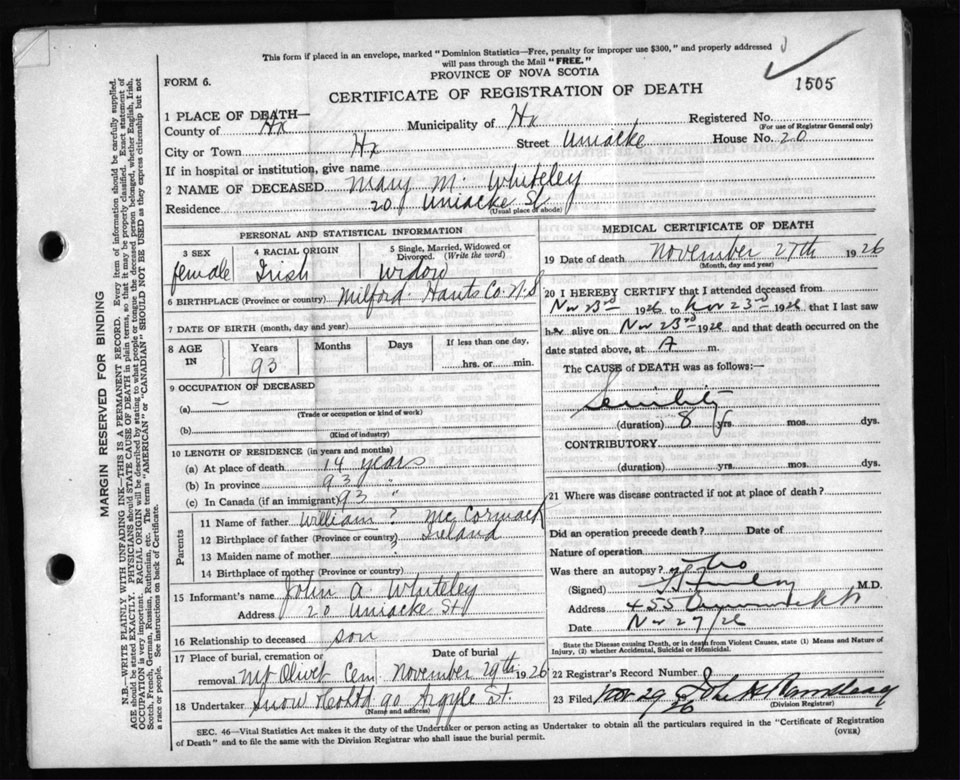 This form if placed in an envelope, marked "Dominion Statistics—Free, penalty for improper use $300," and properly addressed
will pass through the Mail "FREE."
PROVINCE OF NOVA SCOTIA
FORM 6.
1505
CERTIFICATE OF REGISTRATION OF DEATH
1 PLACE OF DEATH—
County of Hx Municipality of Hx Registered No.
(For use of Registrar General only)
City or Town Hx Street Uniacke House No. 20
If in hospital or institution, give name
2 NAME OF DECEASED Mary M. Whiteley
Residence 20 Uniacke St
(Usual place of abode)
PERSONAL AND STATISTICAL INFORMATION
3 SEX 4 RACIAL ORIGIN 5 Single, Married, Widowed or Divorced. (Write the word)
female Irish Widow
6 BIRTHPLACE (Province or country) Milford Hants Co. N.S
7 DATE OF BIRTH (month, day and year)
8 AGE IN Years Months Days If less than one day,
93 hrs. or min.
9 OCCUPATION OF DECEASED
(a) —
(Trade or occupation or kind of work)
(b)
(Kind of industry)
10 LENGTH OF RESIDENCE (in years and months)
(a) At place of death 14 years
(b) In province 93 "
(c) In Canada (if an immigrant) 93 "
Parents
11 Name of father William ? McCormack
12 Birthplace of father (Province or country) Ireland
13 Maiden name of mother ?
14 Birthplace of mother (Province or country)
15 Informant's name John A Whiteley
Address 20 Uniacke St
16 Relationship to deceased son
17 Place of burial, cremation or removal Date of burial
Mt Olivet Cem November 29th 1926
18 Undertaker Snow & Co Ltd 90 Argyle St.
(Name and address)
MEDICAL CERTIFICATE OF DEATH
19 Date of death November 27th 1926
(Month, day and year)
20 I HEREBY CERTIFY that I attended deceased from
Nov 23rd 1926 to Nov 23rd 1926 that I last saw
her alive on Nov 23rd 1926 and that death occurred on the
date stated above, at A m.
The CAUSE of DEATH was as follows:—
Senility
(duration) 8 yrs. mos. dys.
CONTRIBUTORY
(duration) yrs. mos. dys.
21 Where was disease contracted if not at place of death?
Did an operation precede death? Date of
Nature of operation
Was there an autopsy? No
(Signed) M.D.
Address 455
Date Nov 27/26
State the Disease causing Death, or in death from Violent Causes, state (1) Means and Nature of
Injury, (2) whether Accidental, Suicidal or Homicidal.
22 Registrar's Record Number
23 Filed Nov 29/26 John
(Division Registrar)
SEC. 46—Vital Statistics Act makes it the duty of the Undertaker or person acting as Undertaker to obtain all the particulars required in the "Certificate of Registration
of Death" and to file the same with the Division Registrar who shall issue the burial permit.
(OVER)
MARGIN RESERVED FOR BINDING
N.B.—WRITE PLAINLY WITH UNFADING INK—THIS IS A PERMANENT RECORD. Every item of information should be carefully supplied.
AGE should be stated EXACTLY. PHYSICIANS should STATE CAUSE OF DEATH in plain terms, so that it may be properly classified. Exact statement of
OCCUPATION is very important. RACIAL ORIGIN will be described by stating to what people or tongue the deceased person belonged, whether English, Irish,
Scotch, French, German, Russian, Ruthenian, etc. The terms "AMERICAN" or "CANADIAN" SHOULD NOT BE USED as they express citizenship but not
a race or people. See instructions on back of Certificate.